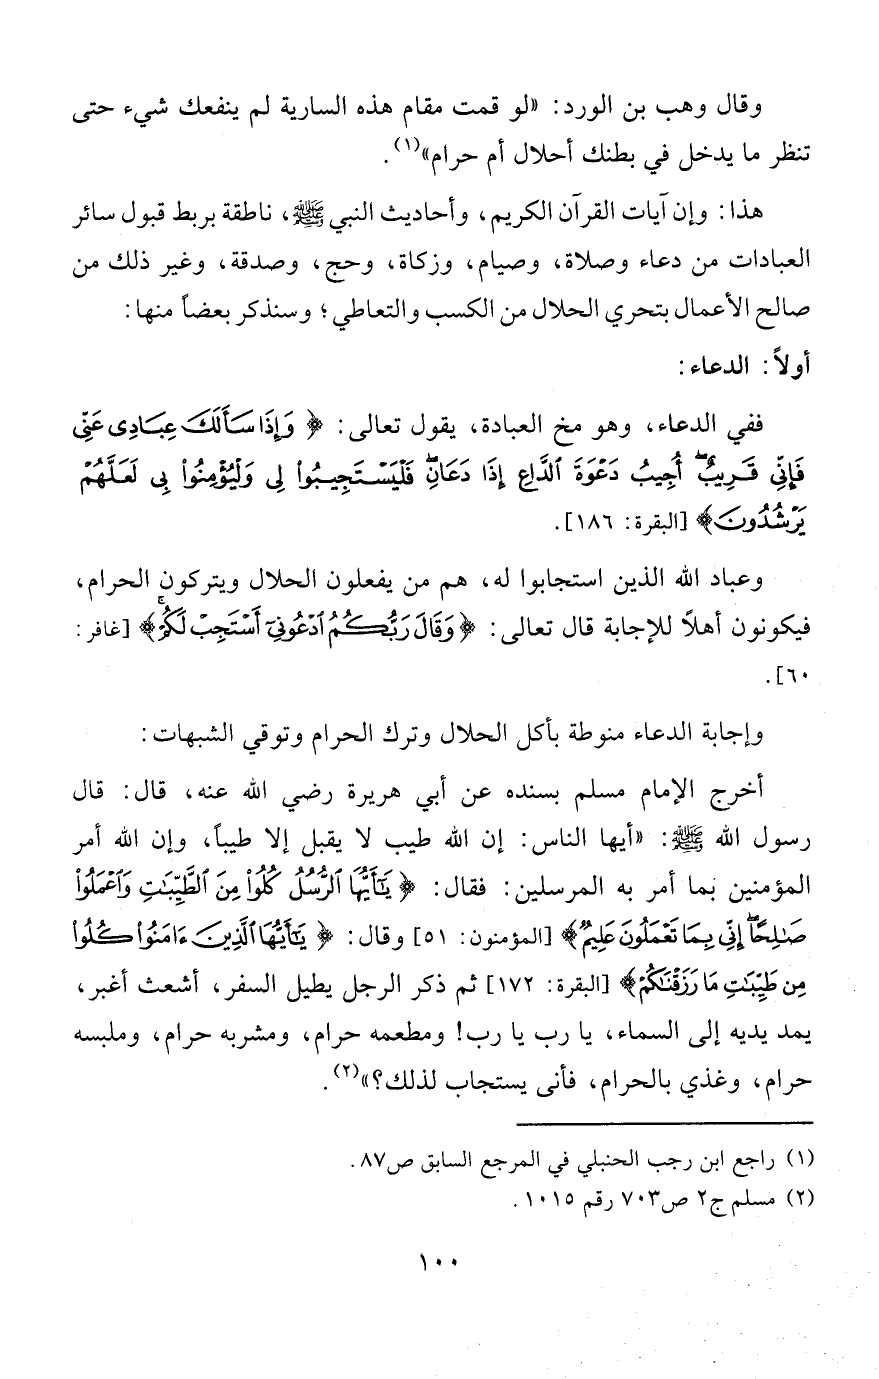 وقال وهب بن الورد: «لو قمت مقام هذه السارية لم ينفعك شيء حتى
تنظر ما يدخل في بطنك أحلال أم حرام»(١).
هذا: وإن آيات القرآن الكريم، وأحاديث النبي ﷺ، ناطقة بربط قبول سائر
العبادات من دعاء وصلاة، وصيام، وزكاة، وحج، وصدقة، وغير ذلك من
صالح الأعمال بتحري الحلال من الكسب والتعاطي؛ وسنذكر بعضاً منها:
أولاً: الدعاء:
ففي الدعاء، وهو مخ العبادة، يقول تعالى: ﴿وَإِذَا سَأَلَكَ عِبَادِى عَنِّى
فَإِنِّى قَرِيبٌ ۖ أُجِيبُ دَعْوَةَ ٱلدَّاعِ إِذَا دَعَانِ ۖ فَلْيَسْتَجِيبُوا۟ لِى وَلْيُؤْمِنُوا۟ بِى لَعَلَّهُمْ
يَرْشُدُونَ﴾ [البقرة: ١٨٦].
وعباد الله الذين استجابوا له، هم من يفعلون الحلال ويتركون الحرام،
فيكونون أهلاً للإجابة قال تعالى: ﴿وَقَالَ رَبُّكُمُ ٱدْعُونِىٓ أَسْتَجِبْ لَكُمْ ۚ﴾ [غافر:
٦٠].
وإجابة الدعاء منوطة بأكل الحلال وترك الحرام وتوقي الشبهات:
أخرج الإمام مسلم بسنده عن أبي هريرة رضي الله عنه، قال: قال
رسول الله ﷺ: «أيها الناس: إن الله طيب لا يقبل إلا طيباً، وإن الله أمر
المؤمنين بما أمر به المرسلين: فقال: ﴿يَٰٓأَيُّهَا ٱلرُّسُلُ كُلُوا۟ مِنَ ٱلطَّيِّبَٰتِ وَٱعْمَلُوا۟
صَٰلِحًا ۖ إِنِّى بِمَا تَعْمَلُونَ عَلِيمٌ﴾ [المؤمنون: ٥١] وقال: ﴿يَٰٓأَيُّهَا ٱلَّذِينَ ءَامَنُوا۟ كُلُوا۟
مِن طَيِّبَٰتِ مَا رَزَقْنَٰكُمْ﴾ [البقرة: ١٧٢] ثم ذكر الرجل يطيل السفر، أشعث أغبر،
يمد يديه إلى السماء، يا رب يا رب! ومطعمه حرام، ومشربه حرام، وملبسه
حرام، وغذي بالحرام، فأنى يستجاب لذلك؟»(٢).
(١) راجع ابن رجب الحنبلي في المرجع السابق ص٨٧.
(٢) مسلم ج٢ ص٧٠٣ رقم ١٠١٥.
١٠٠